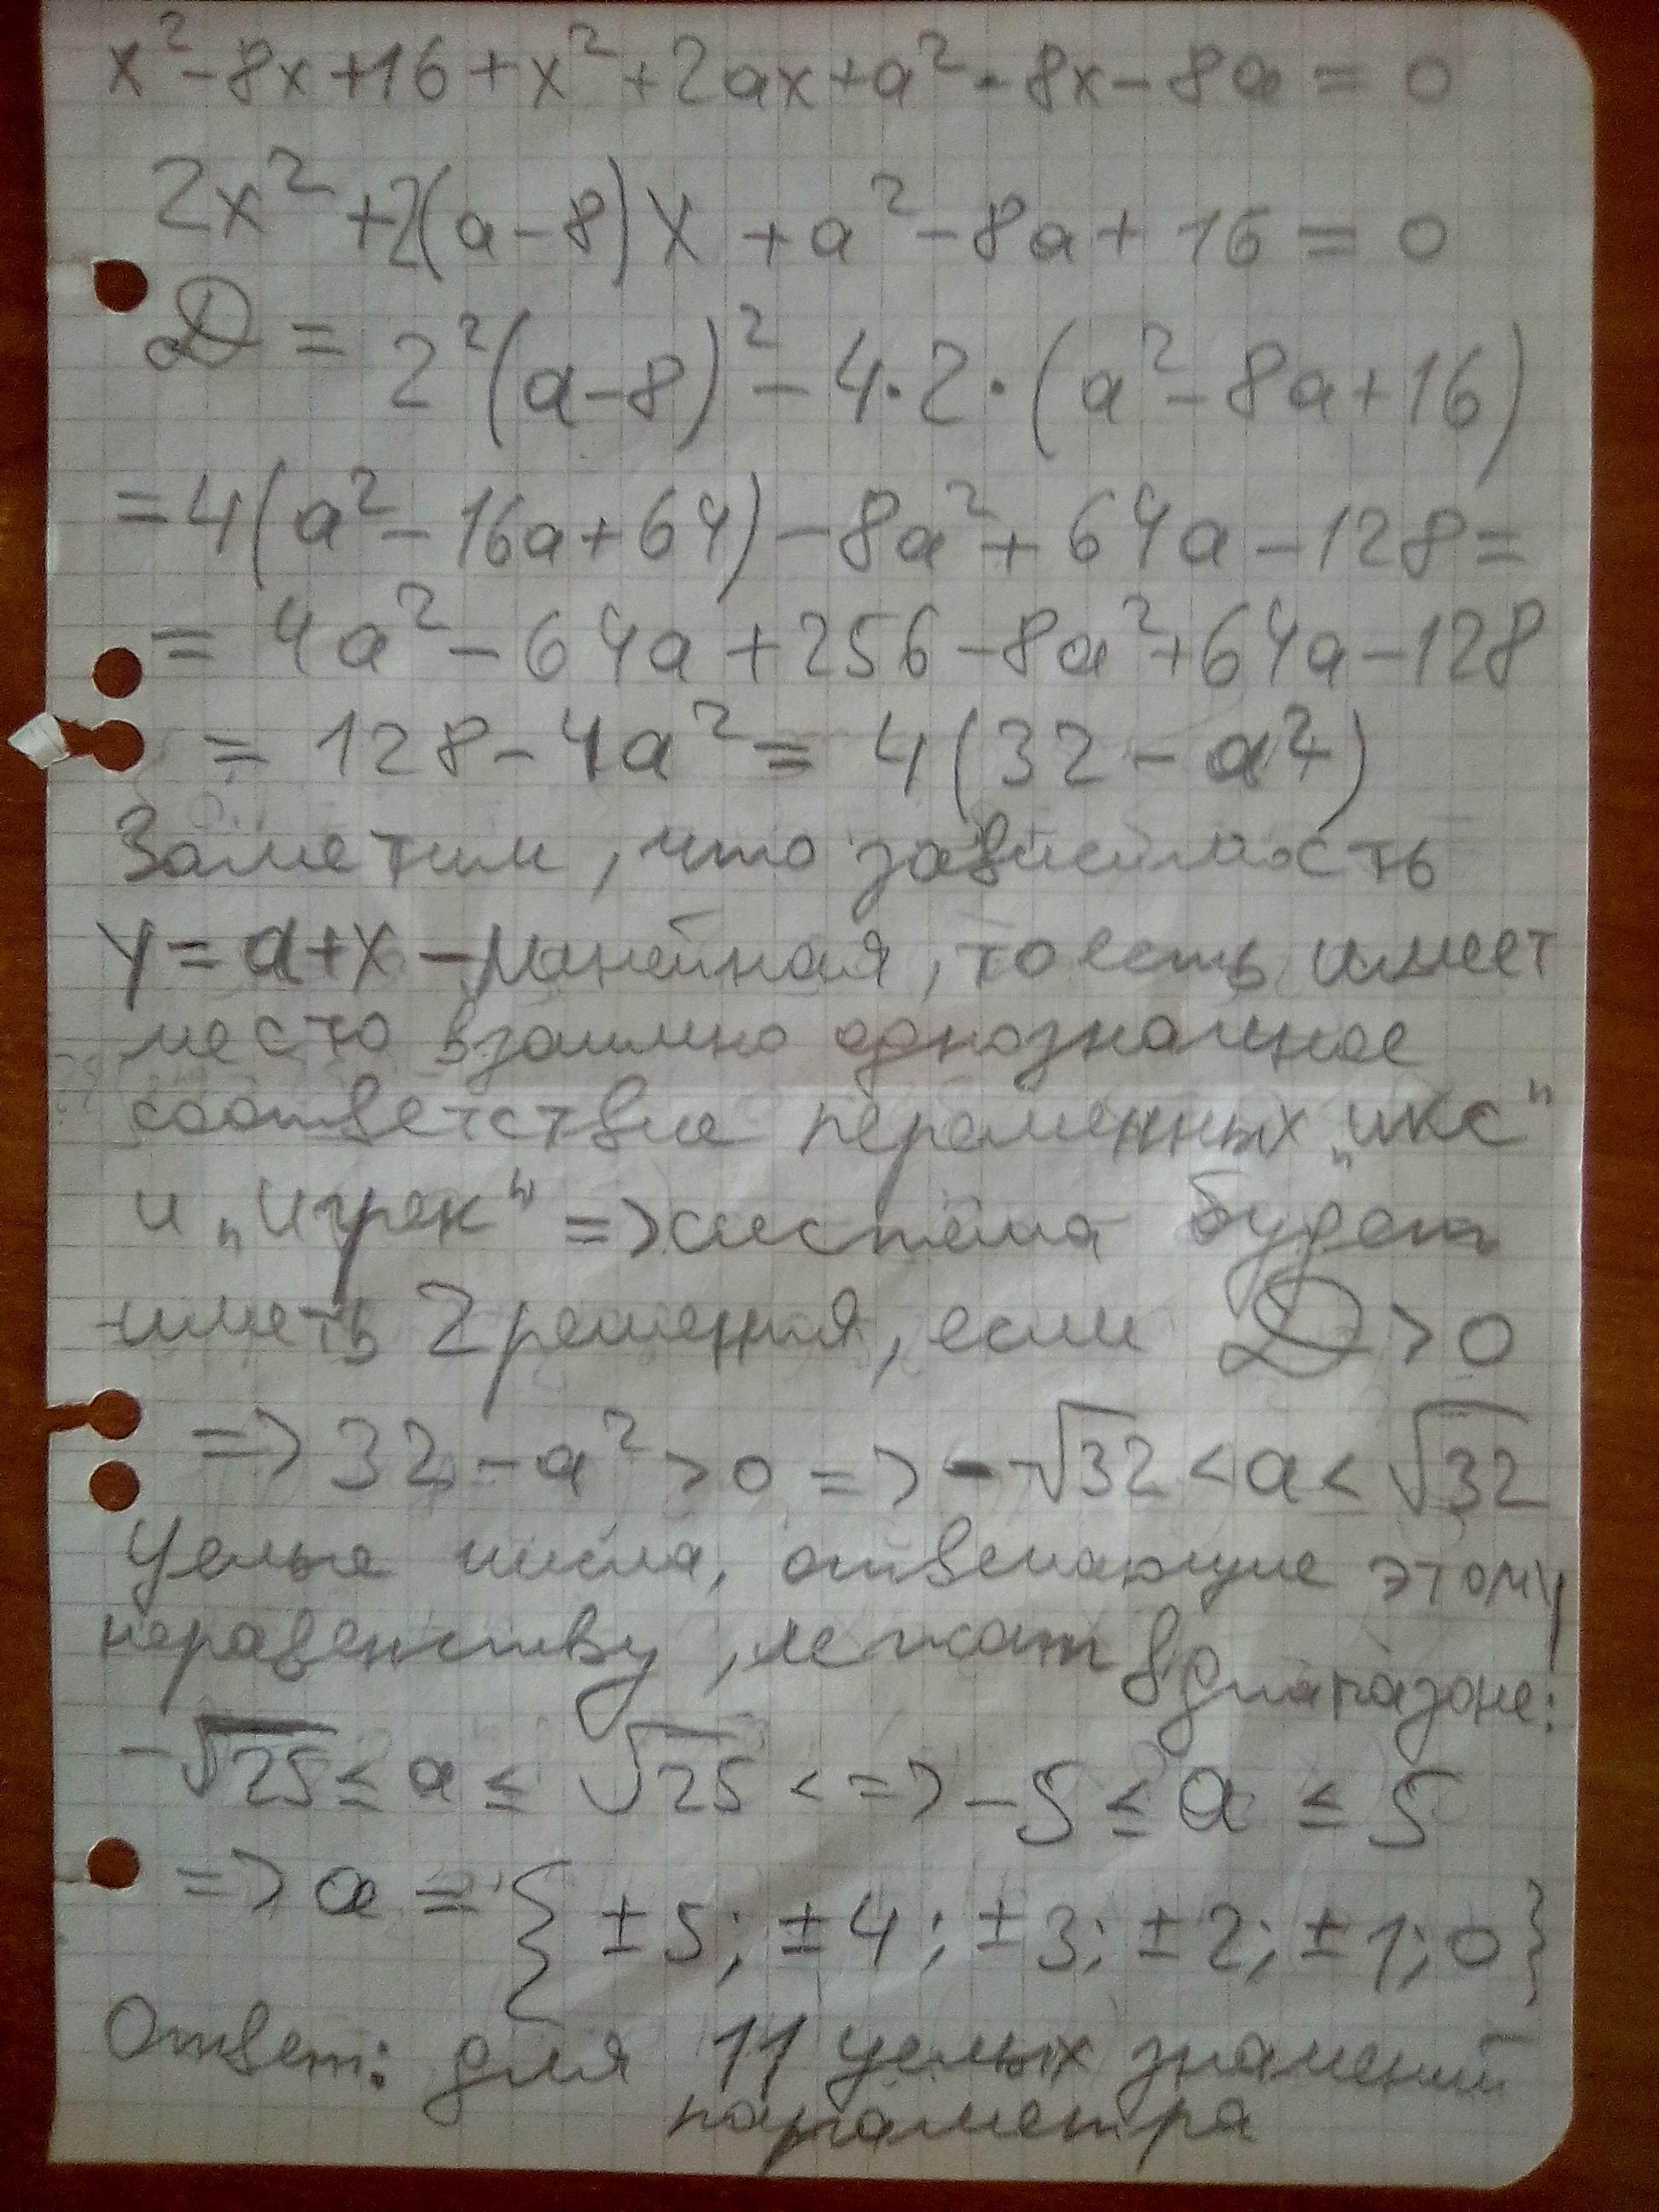 x² - 8x + 16 + x² + 2ax + a² - 8x - 8a = 0
2x² + 2(a - 8)x + a² - 8a + 16 = 0
D = 2²(a - 8)² - 4·2·(a² - 8a + 16)
= 4(a² - 16a + 64) - 8a² + 64a - 128 =
= 4a² - 64a + 256 - 8a² + 64a - 128
= 128 - 4a² = 4(32 - a²)
Заметим, что зависимость
y = a + x - линейная, то есть имеет
место взаимно однозначное
соответствие переменных „икс"
и „игрек" => система будет
иметь 2 решения, если D > 0
=> 32 - a² > 0 => -√32 < a < √32
Целые числа, отвечающие этому
неравенству, лежат в диапазоне:
-√25 ≤ a ≤ √25 <=> -5 ≤ a ≤ 5
=> a = {±5; ±4; ±3; ±2; ±1; 0}
Ответ: для 11 целых значений
параметра